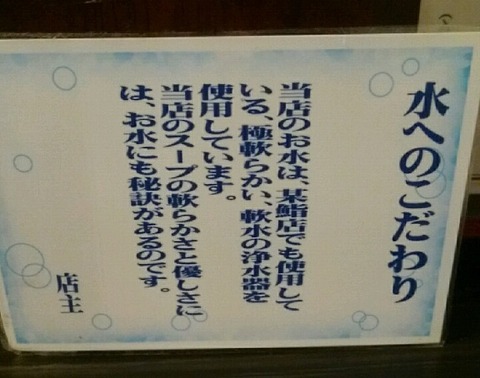 水へのこだわり
当店のお水は、某鮨店でも使用して
いる、極軟らかい、軟水の浄水器を
使用しています。
当店のスープの軟らかさと優しさに
は、お水にも秘訣があるのです。
店主